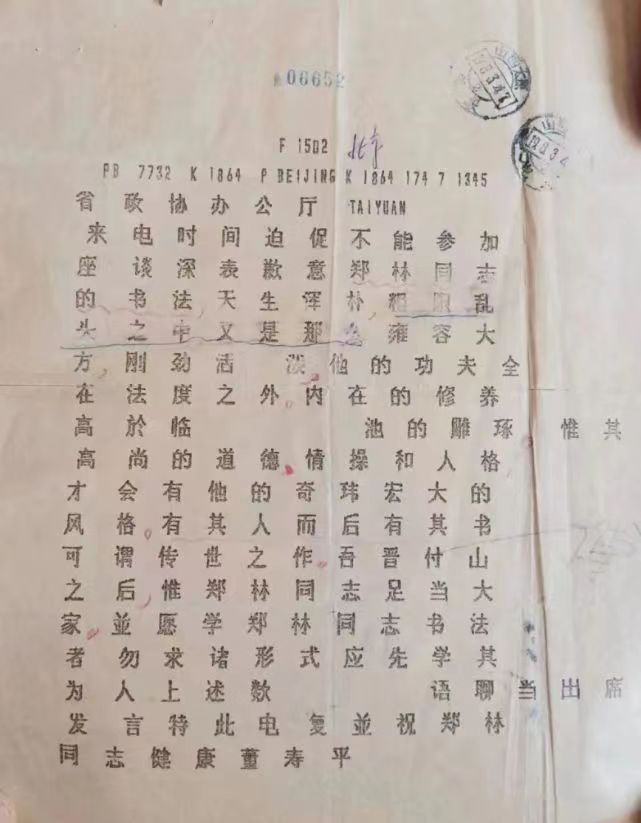 06652
F 1502 北京
PB 7732 K 1864 P BEIJING K 1864 174 7 1345
省政协办公厅 TAIYUAN
来电时间迫促不能参加
座谈深表歉意郑林同志
的书法,天生浑朴,粗服乱
头之中又是那么雍容大
方,刚劲活泼,他的功夫全
在法度之外,内在的修养
高於临池的雕琢,惟其
高尚的道德,情操和人格,
才会有他的奇玮宏大的
风格,有其人而后有其书
可谓传世之作。吾晋付山
之后,惟郑林同志足当大
家,並愿学郑林同志书法
者勿求诸形式应先学其
为人上述数语聊当出席
发言特此电复並祝郑林
同志健康董寿平